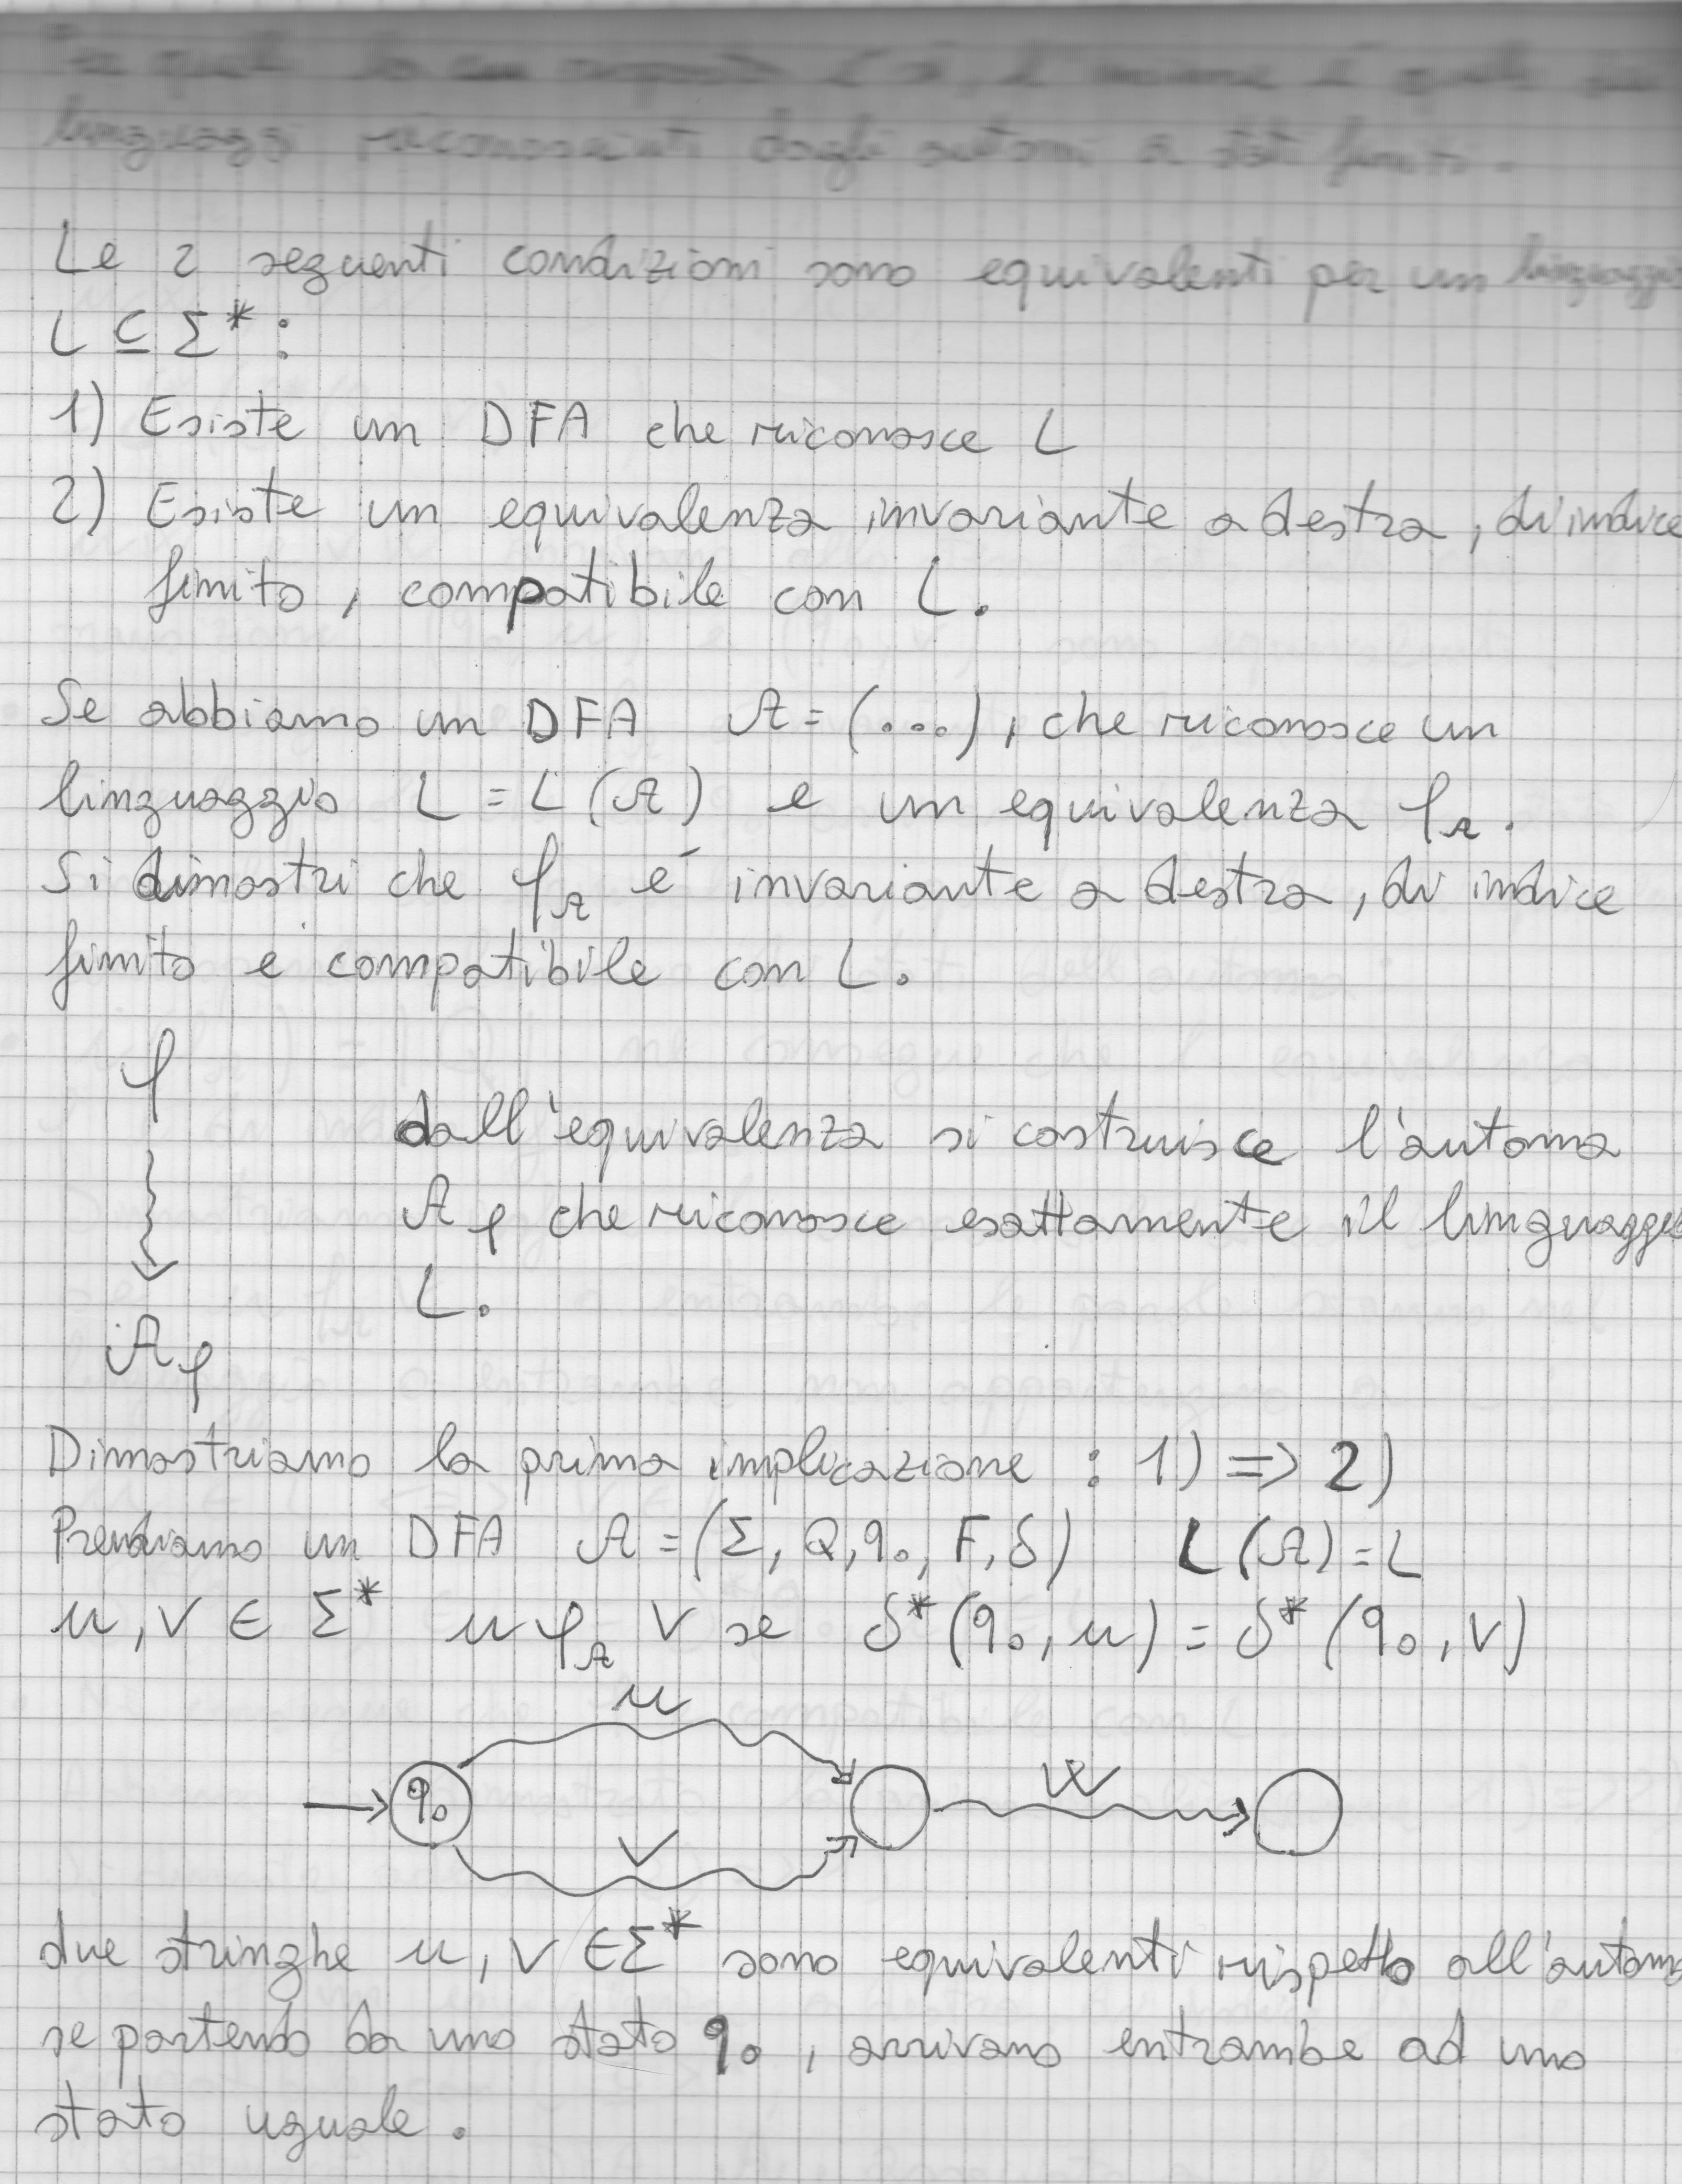 linguaggi riconosciuti dagli automi a stati finiti.
Le 2 seguenti condizioni sono equivalenti per un linguaggio
L ⊆ Σ*:
1) Esiste un DFA che riconosce L
2) Esiste un equivalenza invariante a destra, di indice
finito, compatibile con L.
Se abbiamo un DFA A = (...), che riconosce un
linguaggio L = L(A) e un equivalenza φ_A.
Si dimostri che φ_A é invariante a destra, di indice
finito e compatibile con L.
φ
dall'equivalenza si costruisce l'automa
A_φ che riconosce esattamente il linguaggio
L.
A_φ
Dimostriamo la prima implicazione : 1) => 2)
Prendiamo un DFA A = (Σ, Q, q₀, F, δ) L(A) = L
u, v ∈ Σ* u φ_A v se δ*(q₀, u) = δ*(q₀, v)
u
q₀ w
v
due stringhe u, v ∈ Σ* sono equivalenti rispetto all'automa
se partendo da uno stato q₀, arrivano entrambe ad uno
stato uguale.